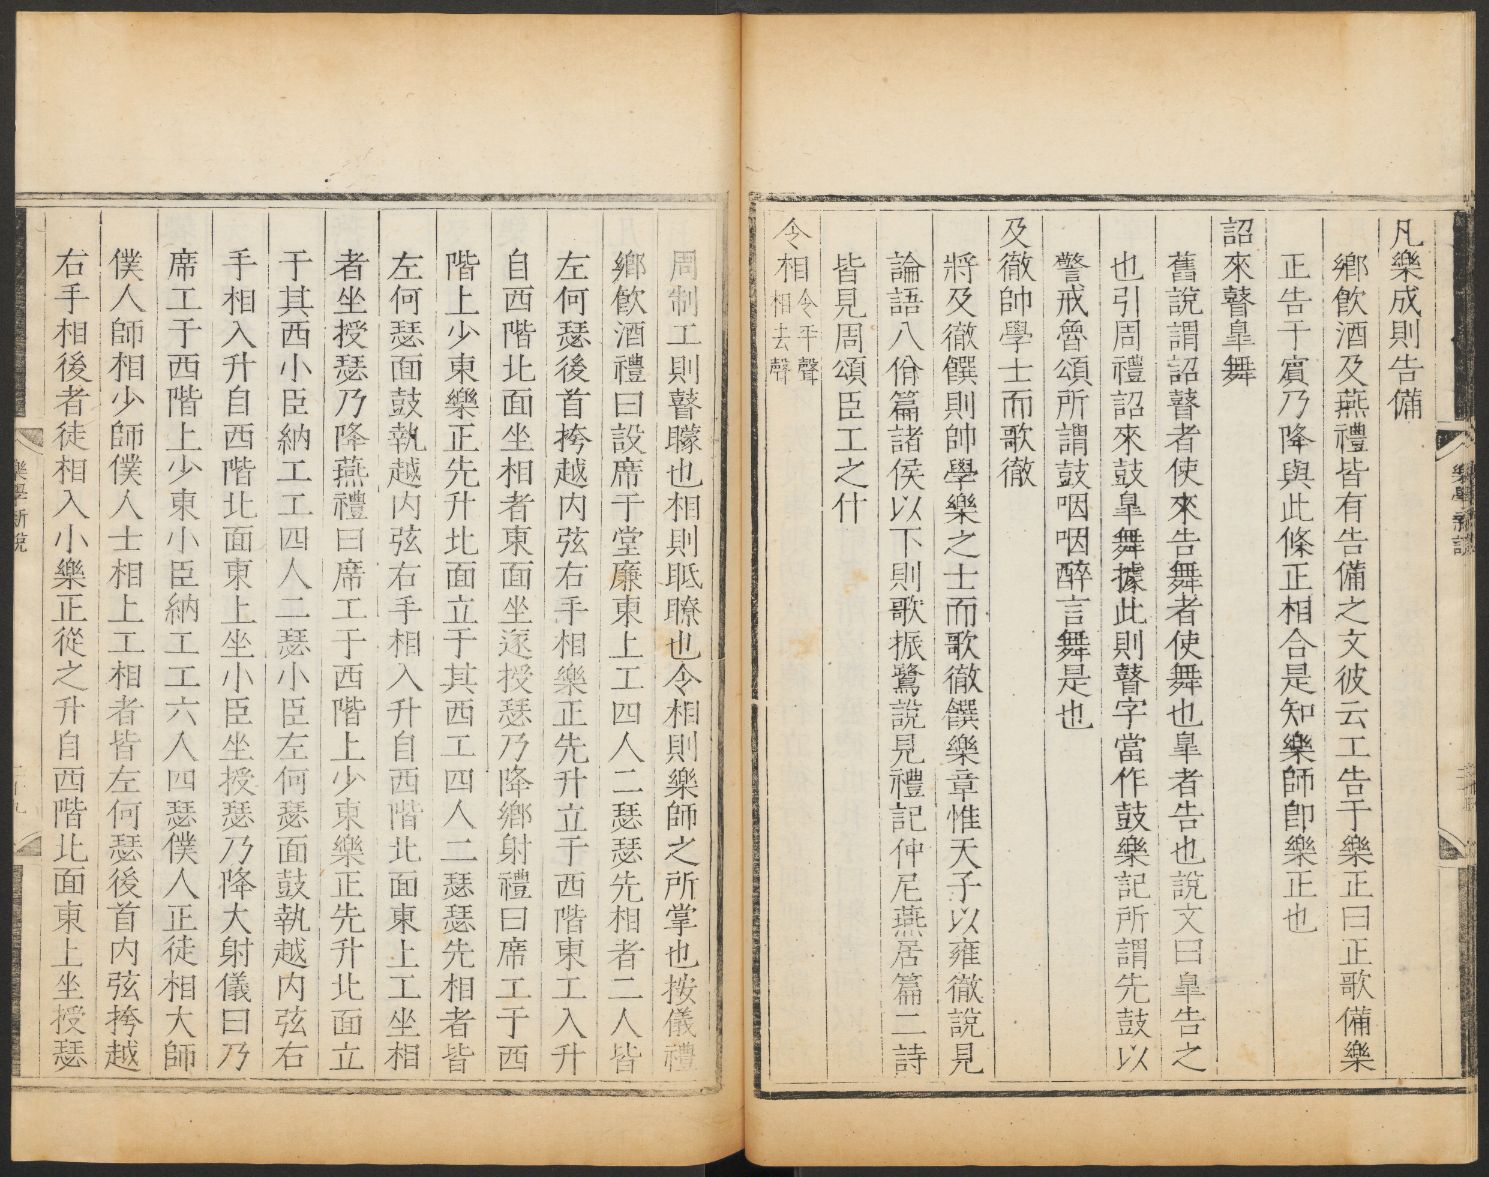 凡樂成則告備
鄉飮酒及燕禮皆有告備之文彼云工告于樂正曰正歌備樂
正告于賓乃降與此條正相合是知樂師卽樂正也
詔來瞽臯舞
舊說謂詔瞽者使來告舞者使舞也臯者告也說文曰臯告之
也引周禮詔來鼓臯舞據此則瞽字當作鼓樂記所謂先鼓以
警戒魯頌所謂鼓咽咽醉言舞是也
及徹帥學士而歌徹
將及徹饌則帥學樂之士而歌徹饌樂章惟天子以雍徹說見
論語八佾篇諸侯以下則歌振鷺說見禮記仲尼燕居篇二詩
皆見周頌臣工之什
令相令平聲相去聲
周制工則瞽矇也相則眡瞭也令相則樂師之所掌也按儀禮
鄉飮酒禮曰設席于堂廉東上工四人二瑟瑟先相者二人皆
左何瑟後首挎越内弦右手相樂正先升立于西階東工入升
自西階北面坐相者東面坐遂授瑟乃降鄉射禮曰席工于西
階上少東樂正先升北面立于其西工四人二瑟瑟先相者皆
左何瑟面鼓執越内弦右手相入升自西階北面東上工坐相
者坐授瑟乃降燕禮曰席工于西階上少東樂正先升北面立
于其西小臣納工工四人二瑟小臣左何瑟面鼓執越内弦右
手相入升自西階北面東上坐小臣坐授瑟乃降大射儀曰乃
席工于西階上少東小臣納工工六人四瑟僕人正徒相大師
僕人師相少師僕人士相上工相者皆左何瑟後首内弦挎越
右手相後者徒相入小樂正從之升自西階北面東上坐授瑟
樂學新說